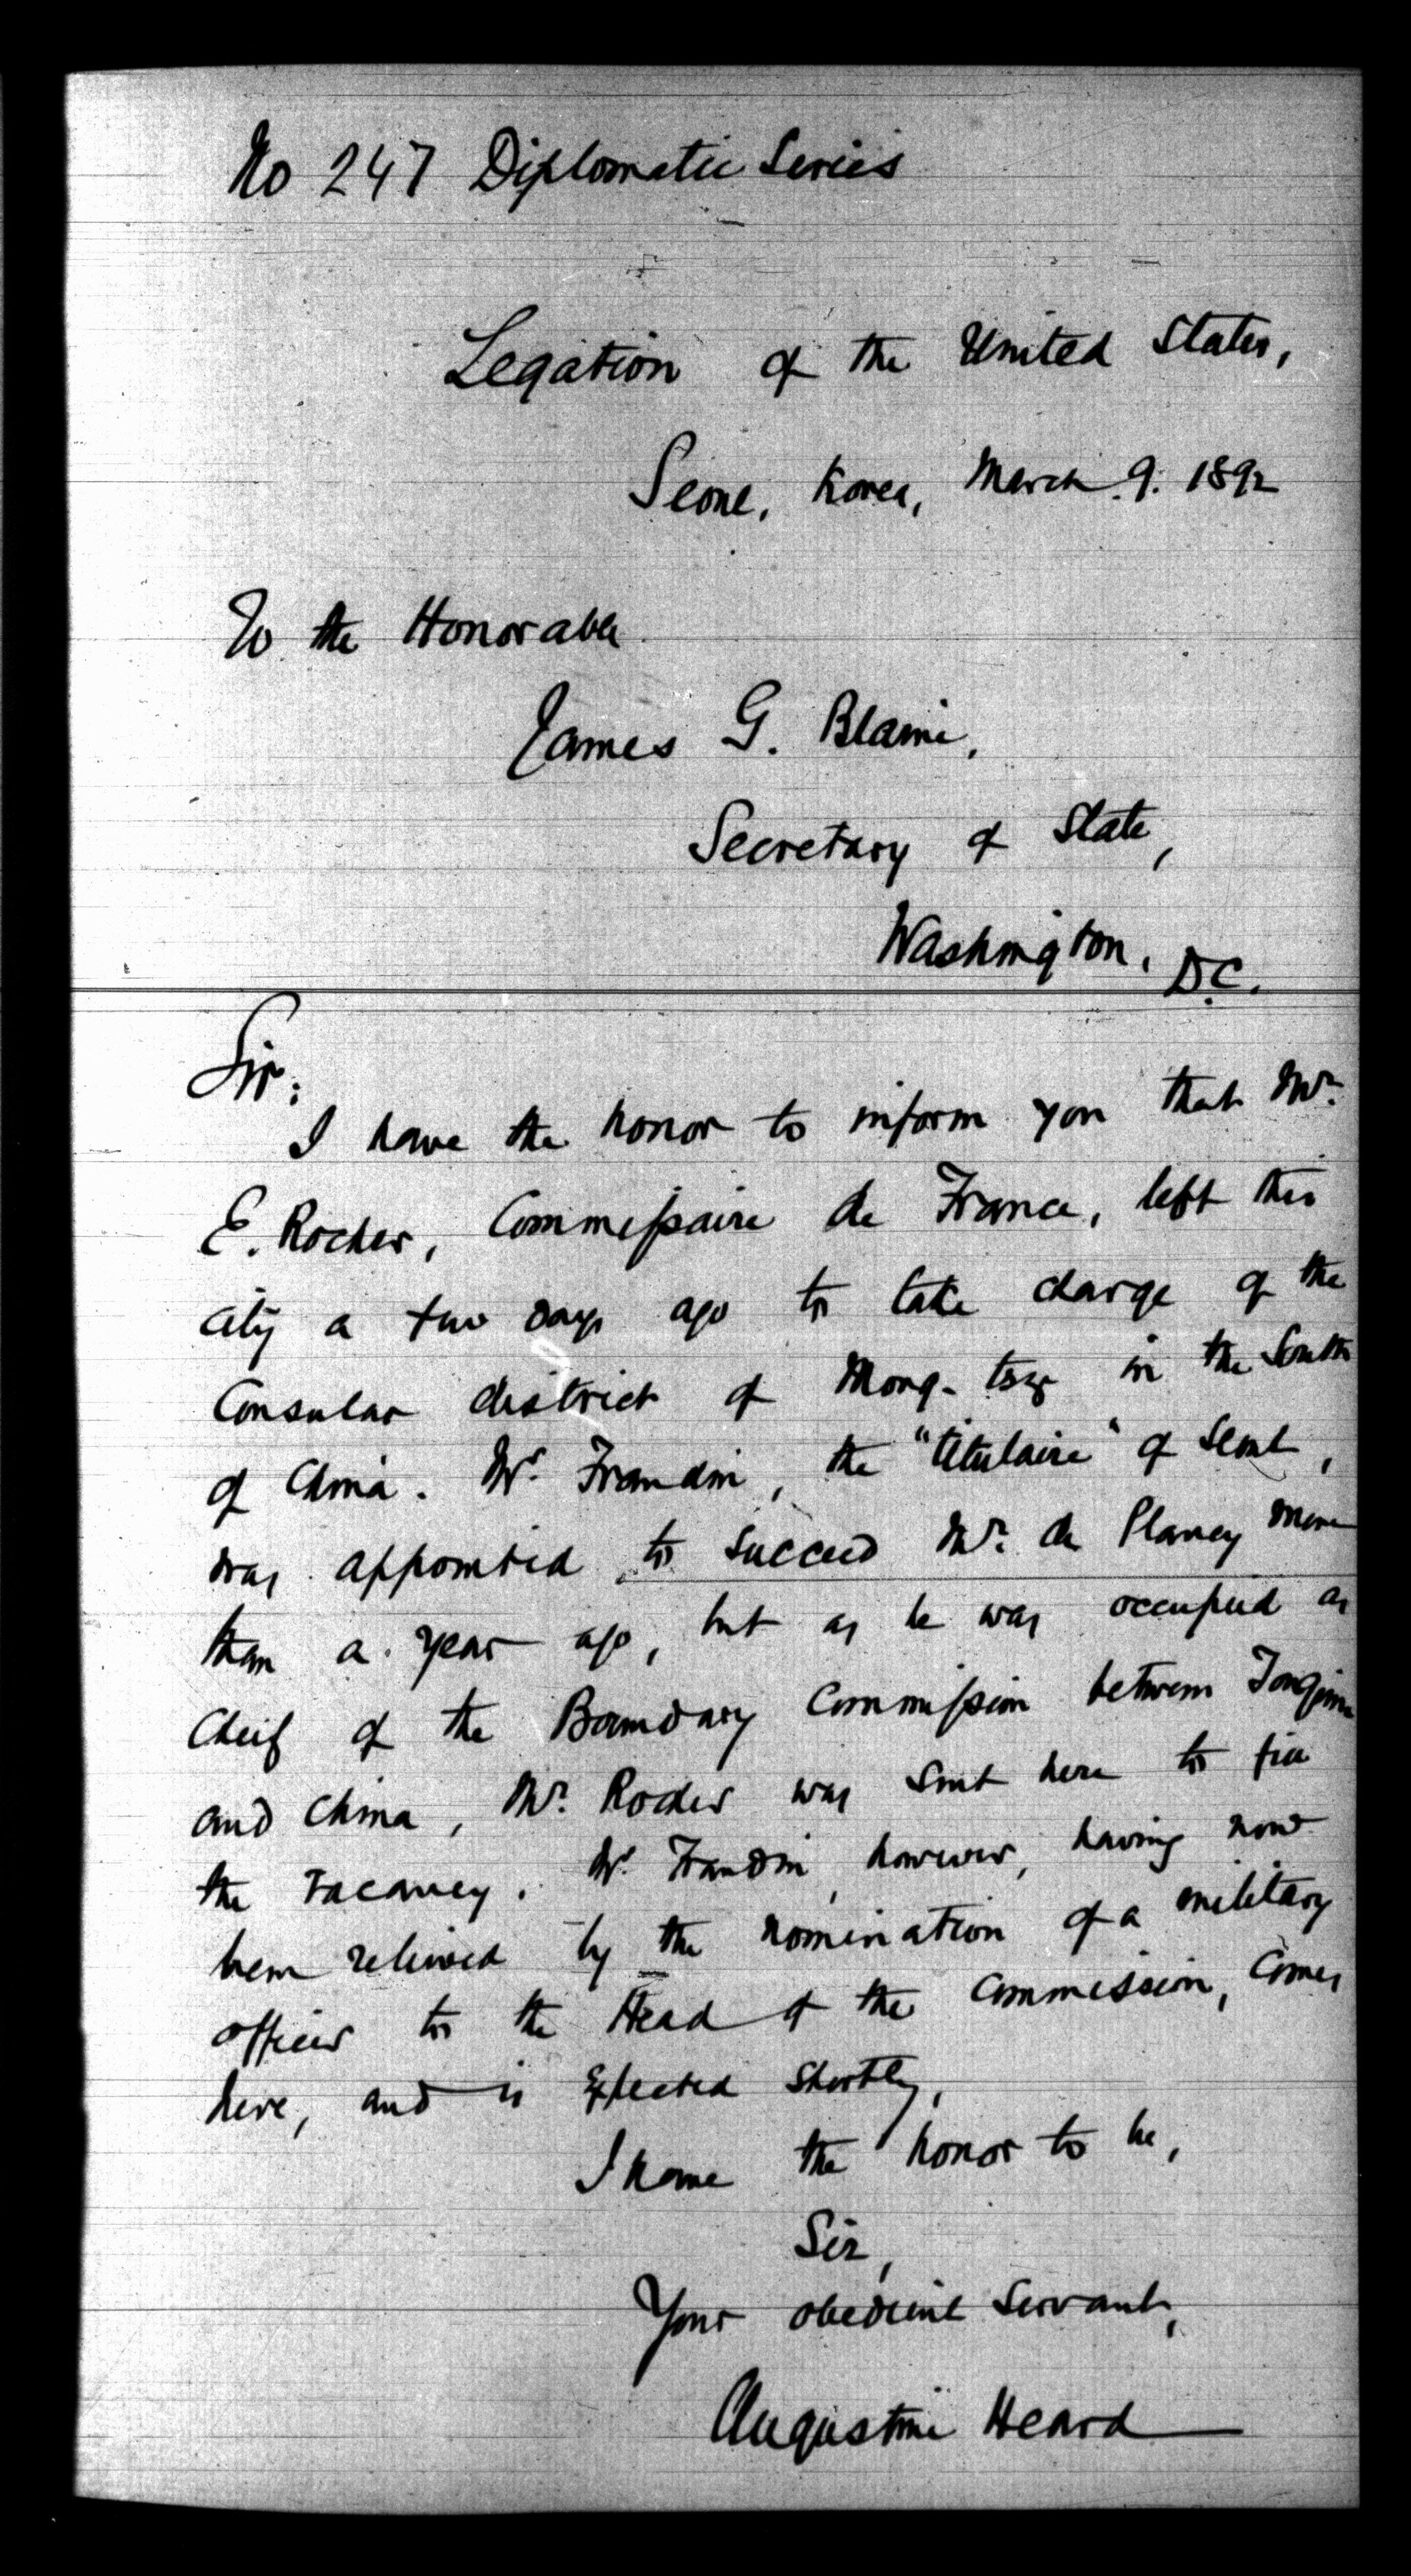 No 247 Diplomatic Series
Legation of the United States,
Seoul, Korea, March 9. 1892
To the Honorable
James G. Blaine,
Secretary of State,
Washington, D.C.
Sir:
I have the honor to inform you that Mr.
E. Rocher, Commissaire de France, left this
city a few days ago to take charge of the
Consular district of Mong-tsze in the South
of China. Mr. Frandin, the "titulaire" of Seoul,
was appointed to succeed Mr. de Plancy more
than a year ago, but as he was occupied as
Cheif of the Boundary Commission between Tonquin
and China, Mr. Rocher was sent here to fill
the vacancy. Mr. Frandin, however, having now
been relieved by the nomination of a military
officer to the Head of the Commission, comes
here, and is expected shortly.
I have the honor to be,
Sir,
Your obedient servant,
Augustine Heard